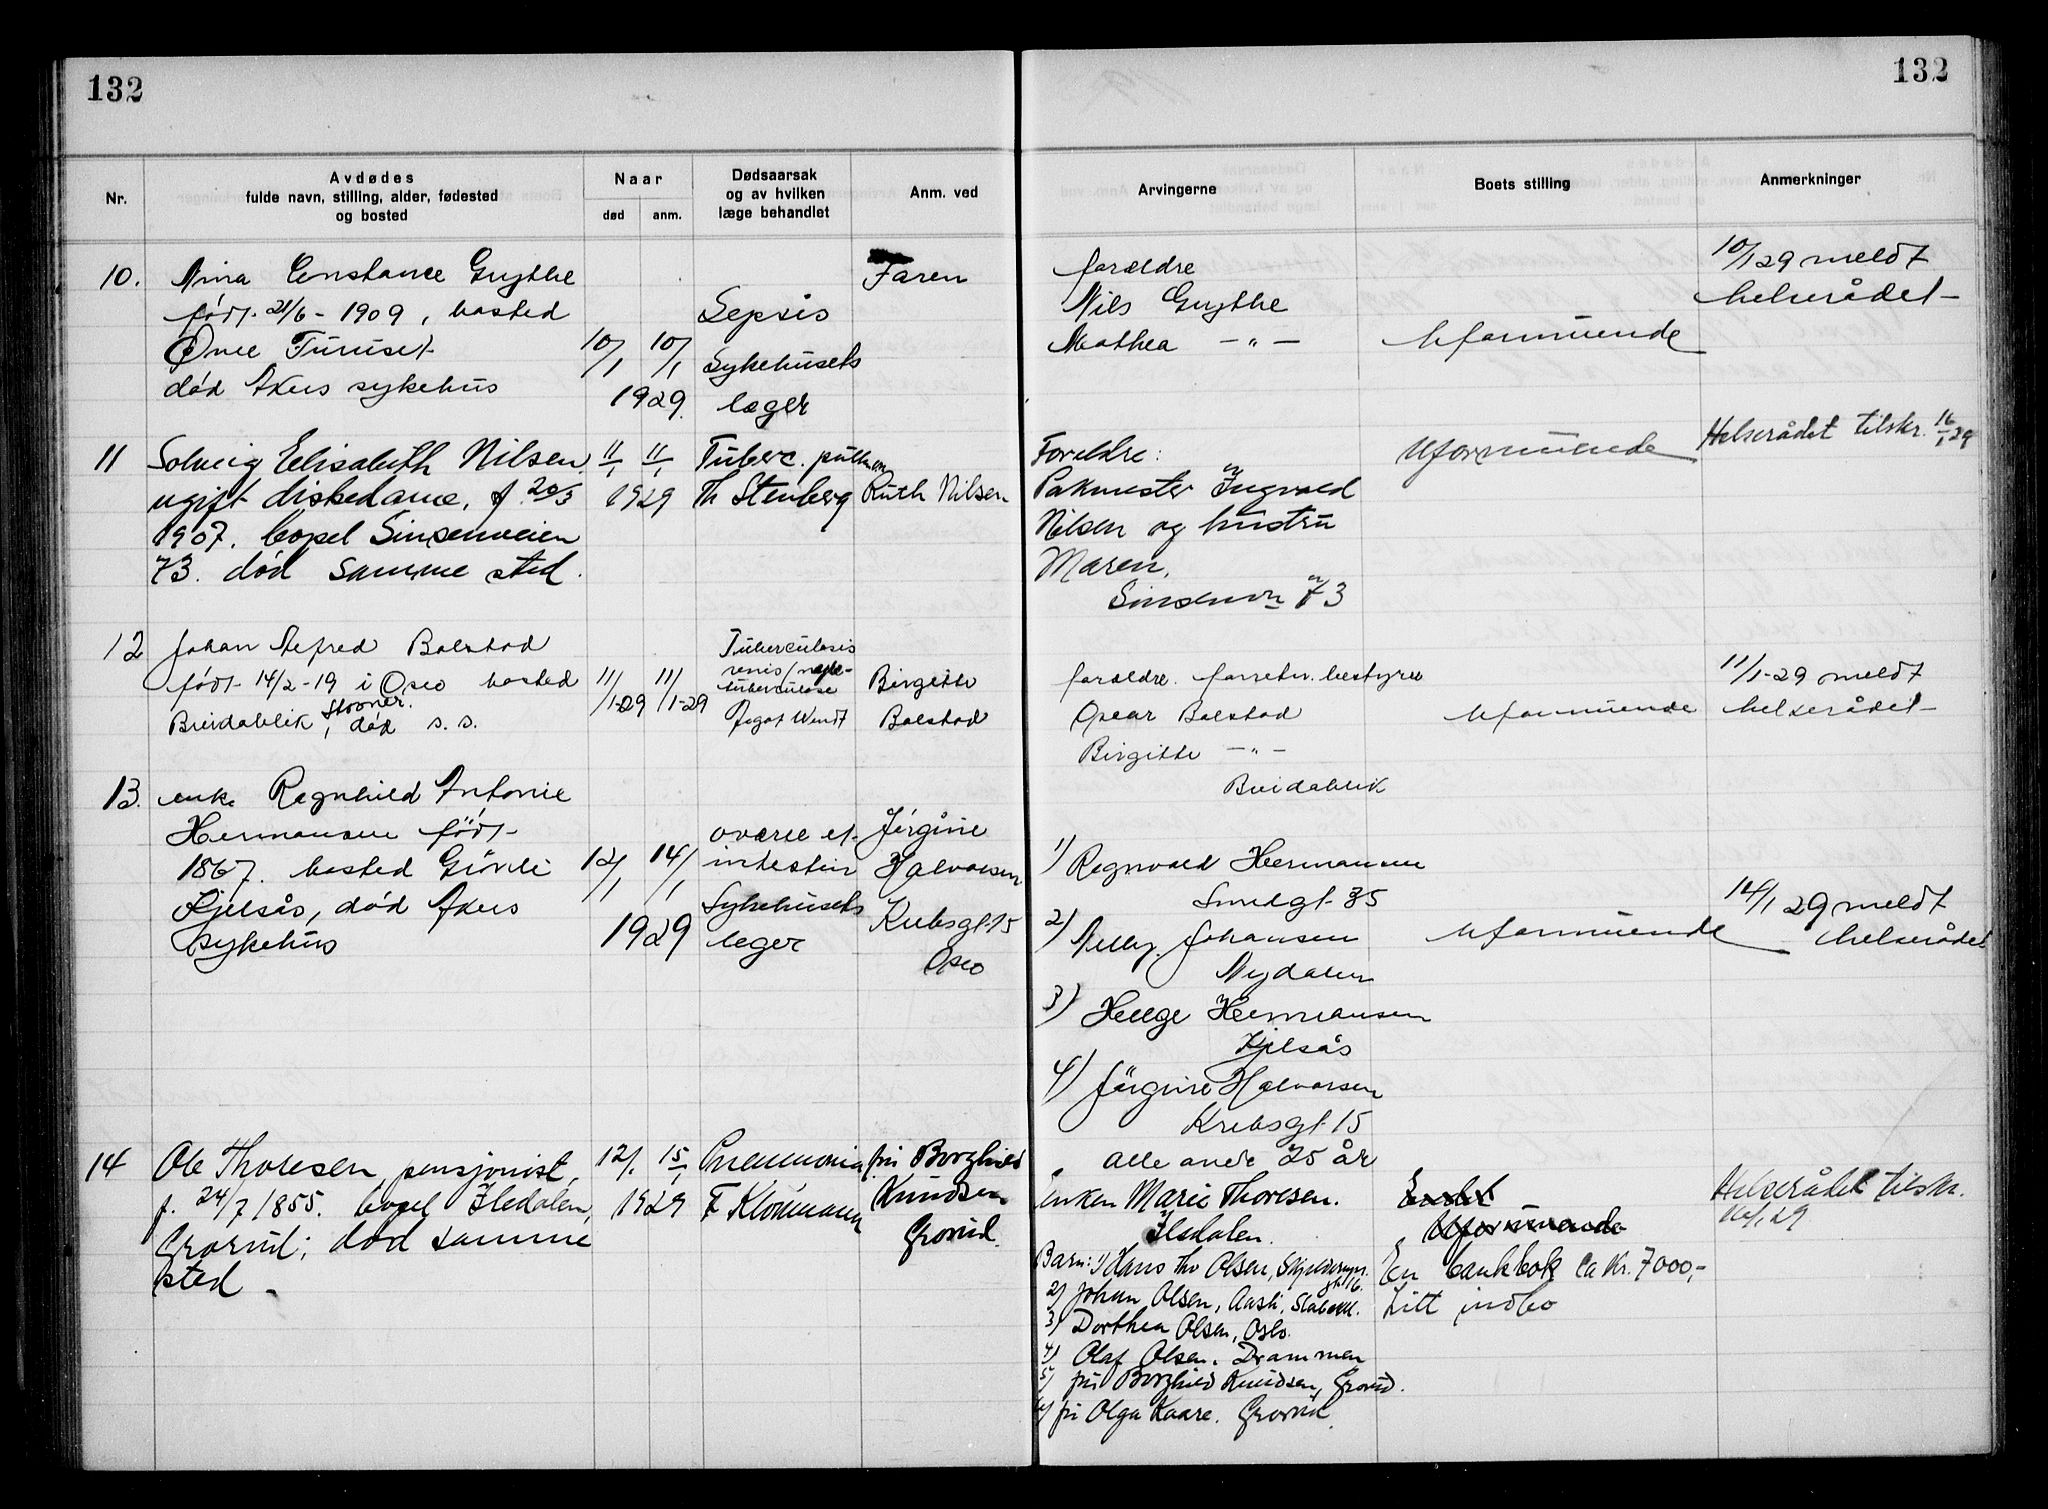 132
132
Nr.
Avdødes
fulde navn, stilling, alder, fødested
og bosted
Naar
død
anm.
Dødsaarsak
og av hvilken
læge behandlet
Anm. ved
Arvingerne
Boets stilling
Anmerkninger
10.
Nina Constance Grythe
født 21/6 - 1909, bosted
Furuset
død Akers sykehus
10/1 10/1
1929.
Sepsis
Sykehusets
læger
Faren
foreldre
Nils Grythe
Mathea -"-
Uformuende
10/1 29 meldt
helserådet
11
Solveig Elisabeth Nilsen
ugift diskedame, f. 20/3
1907. bopel Sinsenveien
73. død samme sted.
11/1 11/1
1929
Tuberc. pulmon
Th Stenberg
Ruth Nilsen
Foreldre:
Pakmester Ingvald
Nilsen og hustru
Maren,
Sinsenvn 73
Uformuende
Helserådet tilskr. 16/1 29
12
Johan Alfred Bolstad
født 14/2 - 19 i Oslo bosted
Stovner.
Breidablik, død s. s.
11/1-29 11/1-29
Tuberculosis
renis/nyre-
tuberculose
Wendt
Birgitte
Bolstad
foreldre. forretn. bestyrer
Oscar Bolstad
Birgitte -"-
Breidablik
Uformuende
11/1-29 meldt
helserådet
13.
enke Ragnhild Antonie
Hermansen født
1867. bosted
Kjelsås, død Akers
sykehus
12/1 14/1
1929
et
intestin
Sykehusets
leger
Jørgine
Halvorsen
Krebsgt 15
Oslo
1) Ragnvald Hermansen
Smedgt. 35
2) Nelly Johansen
Nydalen
3) Helge Hermansen
Kjelsås
4) Jørgine Halvorsen
Krebsgt 15
alle over 25 år
Uformuende
14/1 29 meldt
helserådet
14
Ole Thoresen pensjonist,
f. 24/7 1855. bopel Iledalen,
Grorud; død samme
sted.
12/1 15/1
1929
Pneumonia
F Klouman
fru Borghild
Knudsen
Grorud.
Enken Marie Thoresen.
Iledalen.
Barn: 1) Hans Thv Olsen,
2) Johan Olsen, Slabekk.
3) Dorthea Olsen, Oslo.
4) Olaf Olsen. Drammen
5) fru Borghild Knudsen, Grorud.
6) fru Olga Kaare. Grorud.
Uformuende
En bankbok ca kr. 7000,-
Litt indbo
Helserådet tilskr.
16/1 29